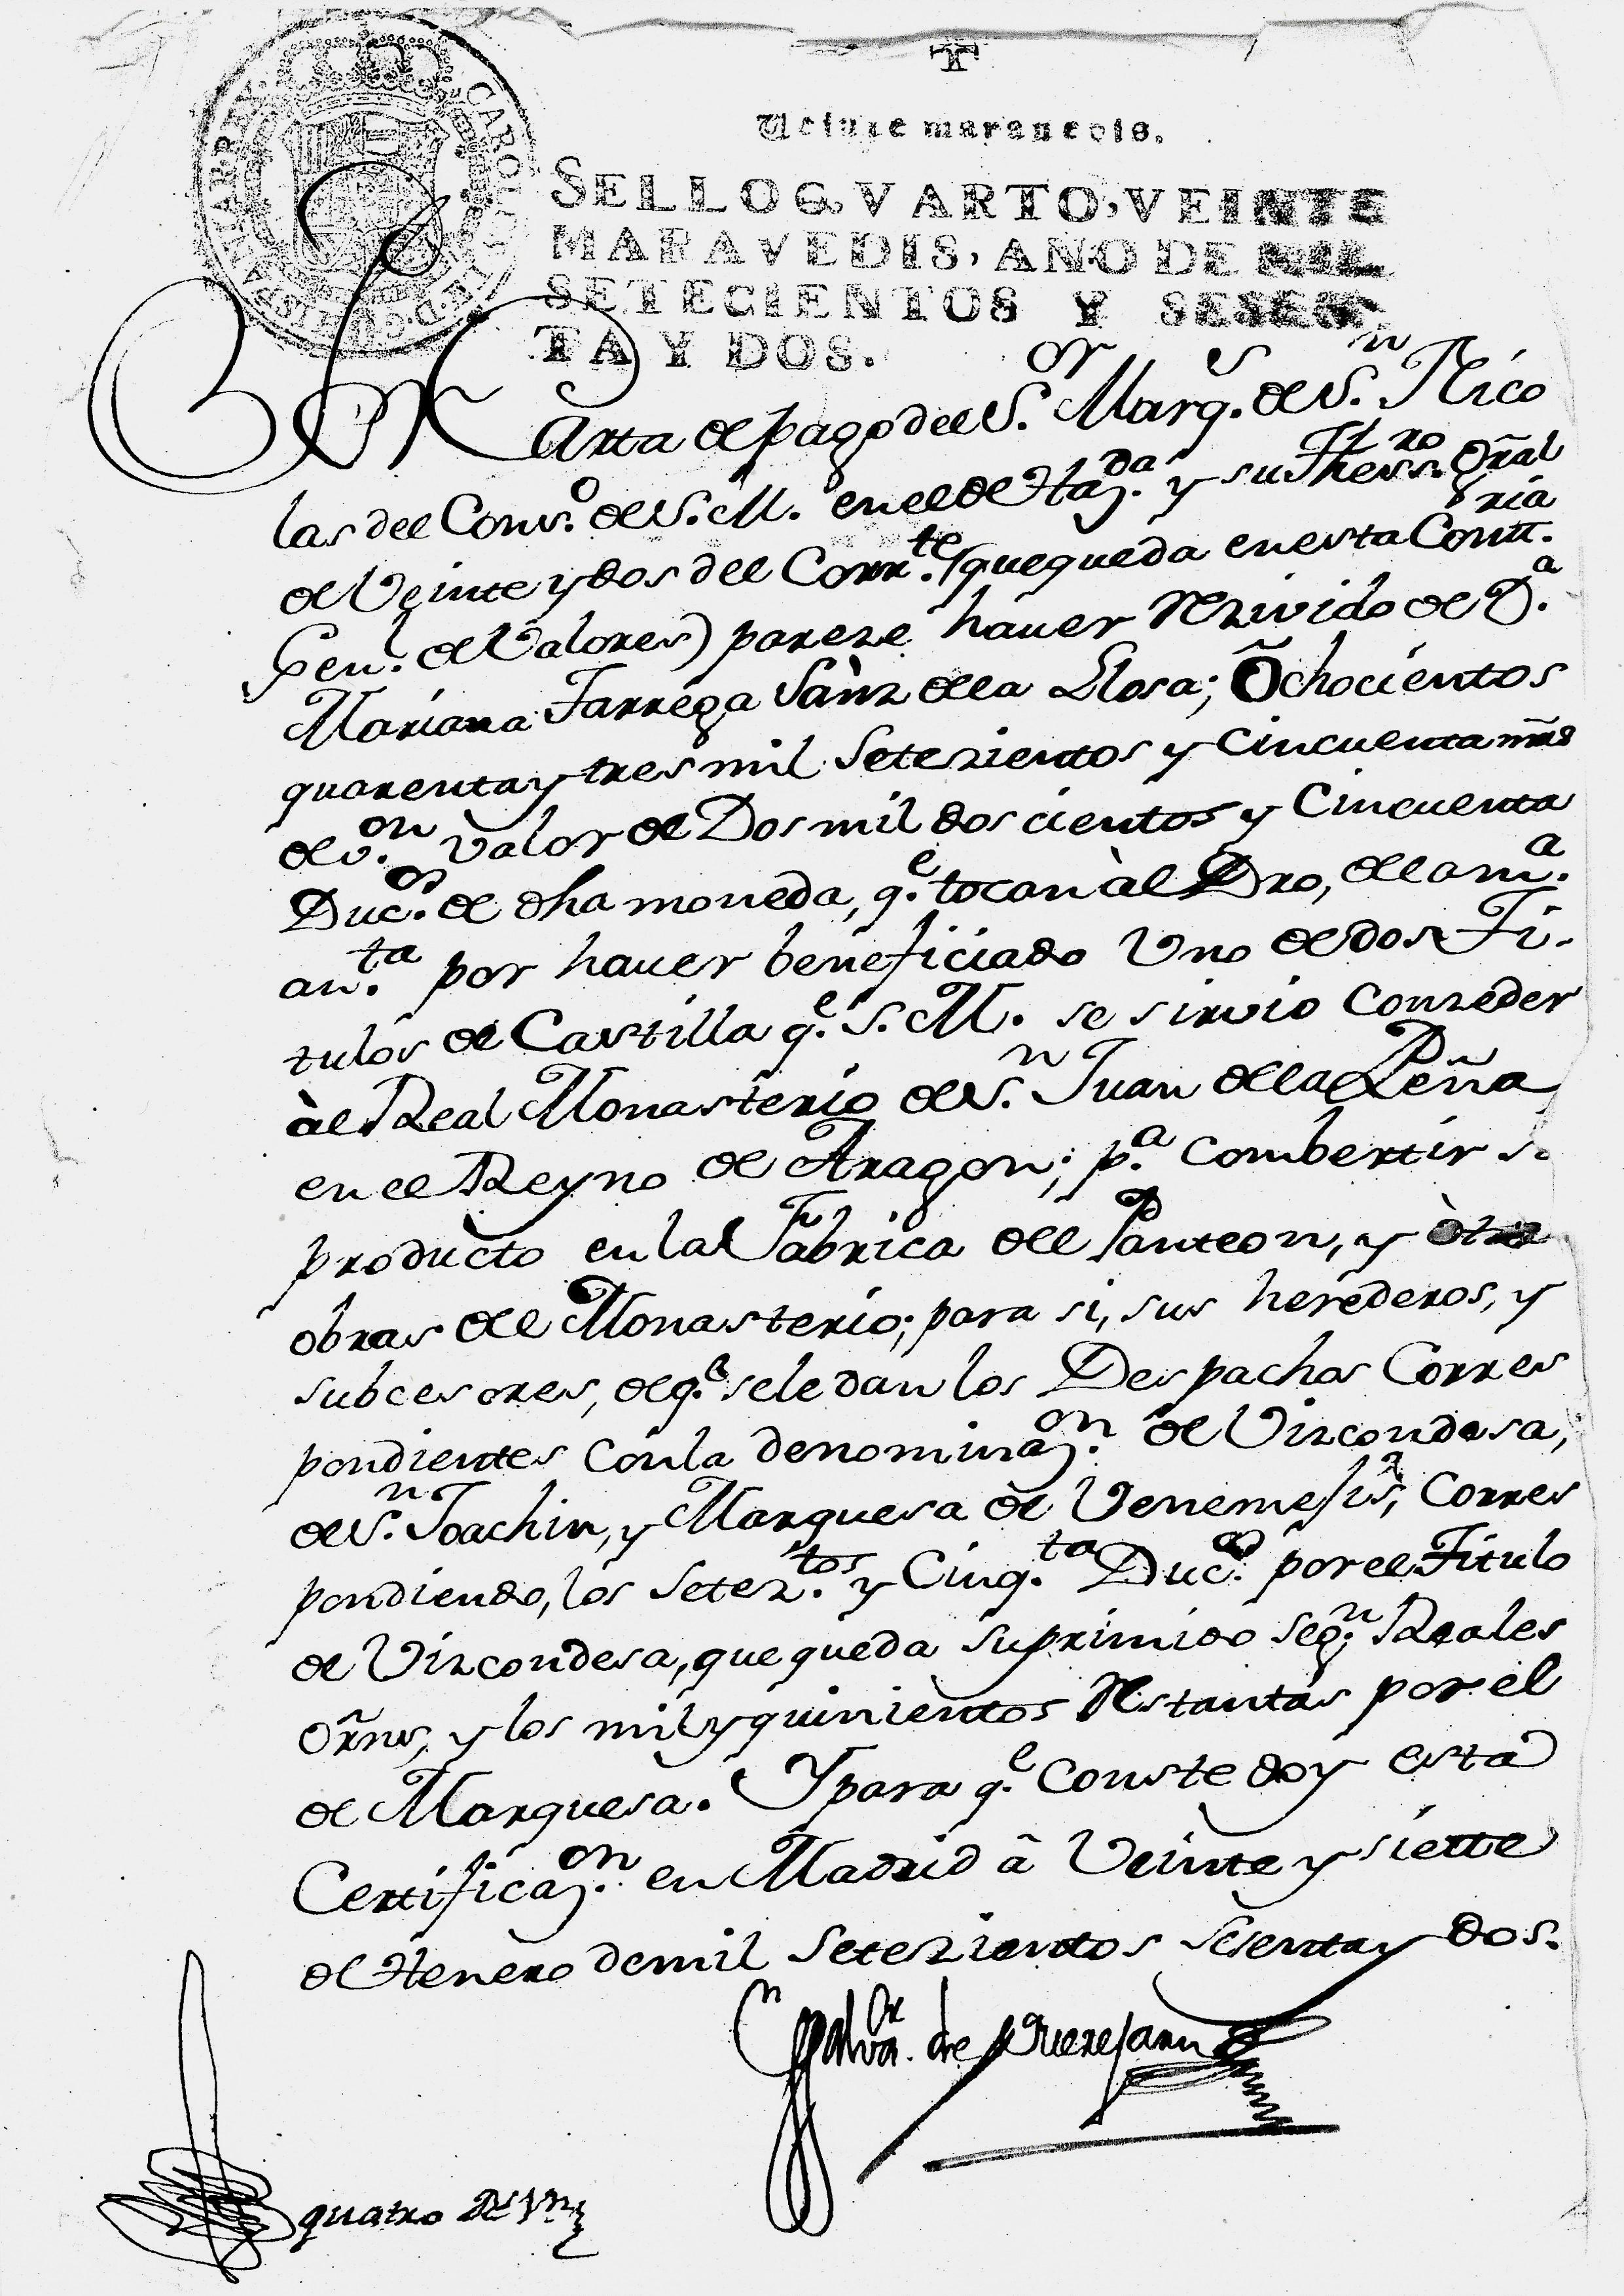 CAROLUS III D.G. HISPANIAR. REX
Veinte maravedis.
SELLO QVARTO, VEINTE
MARAVEDIS, AÑO DE MIL
SETECIENTOS Y SESEN
TA Y DOS.
Carta de pago del S.or Marq.s de S.n Nico
las del Cons.o de S. M. en el de Haz.da y su Thess.ro Gñal
de Veinte y dos del Corr.te (que queda en esta Cont.ria
Gen.l de Valores) pareze hauer Rezivido de D.a
Mariana Tarrega Sànz de la Llosa; Ochocientos
quarenta y tres mil Setezientos y Cincuenta mr̃s
de v.on valor de Dos mil dos cientos y Cincuenta
Duc.os de dha moneda, q.e tocan àl Dro, de la m.a
an.ta por hauer beneficiado Uno de dos Ti-
tulos de Castilla q.e S. M. se sirvio Conzeder
àl Real Monasterio de S.n Juan de la Peña
en el Reyno de Aragon; p.a Combertir s.
producto en la Fabrica del Panteon, y òtra
obras del Monasterio; para si, sus herederos, y
subcesores, de q.e se le dan los Despachos Corres
pondientes Con la denominaz.on de Vizcondesa,
de S.n Joachin, y Marquesa de Venemejis, Corres
pondiendo, los Setez.tos y Cinq.ta Duc.os por el Titulo
de Vizcondesa, que queda suprimido seg.n Reales
Orñs, y los mil y quinientos Restantas por el
de Marquesa. Y para q.e Conste doy esta
Certificaz.on en Madrid â Veinte y siette
de Henero de mil Setezientos Sesenta y Dos.
Salv.or de Querejazu
quatro Rs Vn